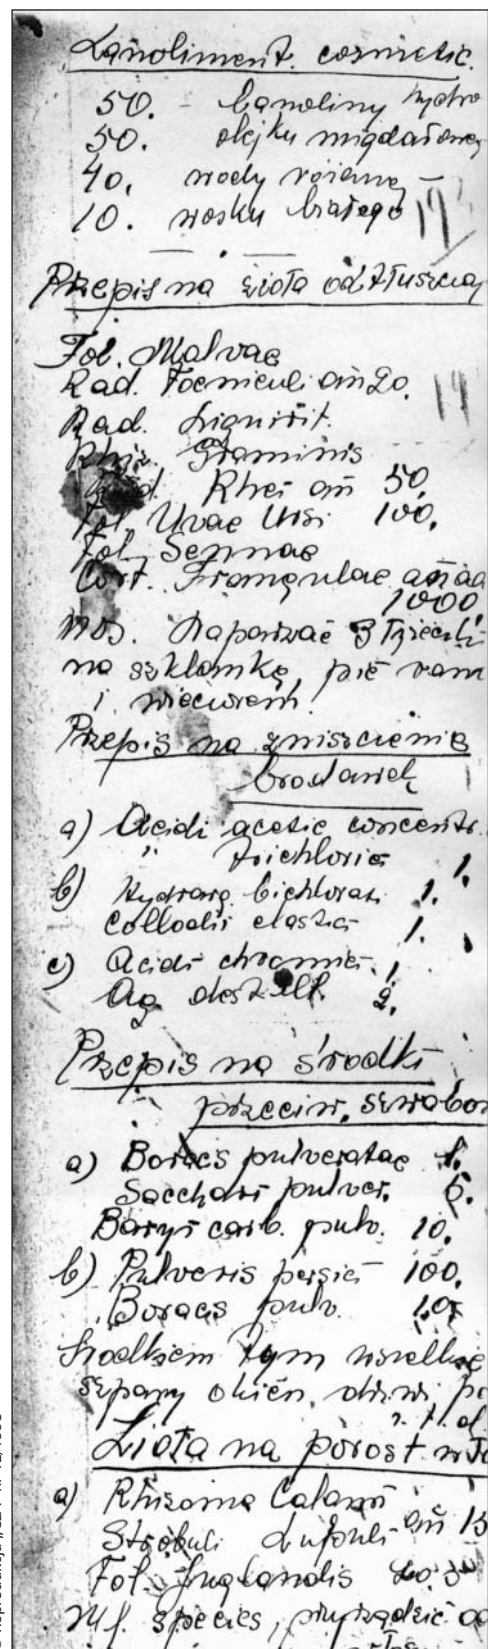 Lanoliment. cosmetic.
50. - Lanoliny hydro
50. olejku migdałowe
40. wody różanej -
10. wosku białego
Przepis na zioła od tłuszczaj
Fol. Malvae
Rad. Foeniculi aa 20.
Rad. Liquirit.
Rhiz. Graminis
Rad. Rhei aa 50.
Fol. Uvae Ursi 100.
Fol. Sennae
Cort. Frangulae aa ad
1000.
MDS. Naparzać 3 łyżeczki
na szklankę, pić rano
i wieczorem.
Przepis na zniszczenie
brodawek
a) Acidi acetic concentr.
" trichloric 1.
b) Hydrarg. bichlorat. 1.
Collodii elastic 1.
c) Acidi chromic. 1.
Aq. destill. 2.
Przepis na środki
przeciw. szwabom
a) Boraes pulveratae 1.
Sacchari pulver. 5.
Baryi carb. pulv. 10.
b) Pulveris persici 100.
Boraes pulv. 10.
Środkiem tym wszelkie
szpary okien, drzwi po
i t. d.
Zioła na porost wło
a) Rhizoma Calami
Strobuli Lupuli aa 15
Fol. Juglandis
Mf. species, przyrządzić od